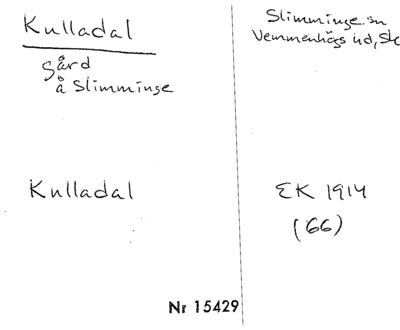 Kulladal
gård
å Slimminge
Kulladal
Slimminge sn
Vemmenhögs hd, Sk
EK 1914
(66)
Nr 15429